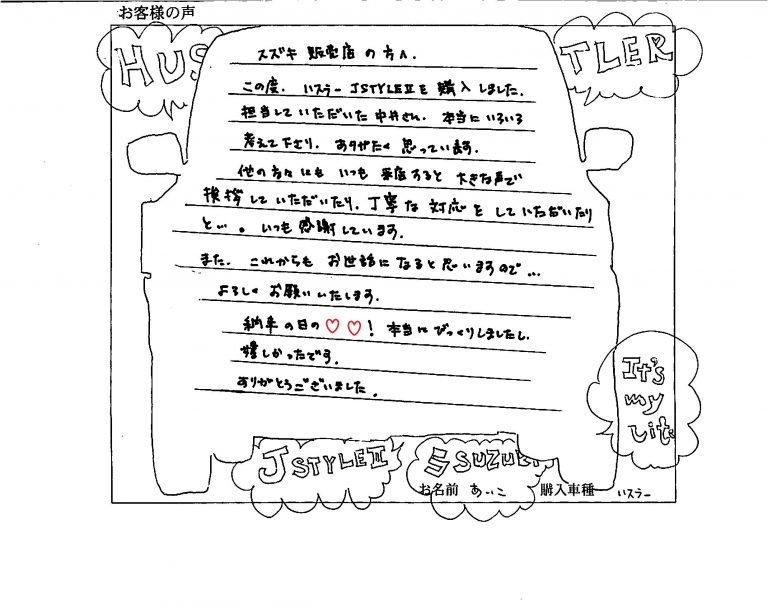 お客様の声
HUS TLER
スズキ 販売店の方へ.
この度. ハスラー JSTYLEⅡを 購入しました.
担当していただいた中井さん. 本当にいろいろ
考えて下さり. ありがたく 思っています.
他の方々にも いつも 来店すると 大きな声で
挨拶していただいたり. 丁寧な 対応を していただいたり
と…。いつも感謝しています.
また. これからも お世話になると思いますので…
よろしく お願いいたします.
納車の日の♡♡! 本当にびっくりしましたし.
嬉しかったです.
ありがとうございました.
It's
my
Life
JSTYLEⅢ SUZUKI
お名前 あいこ 購入車種 ハスラー